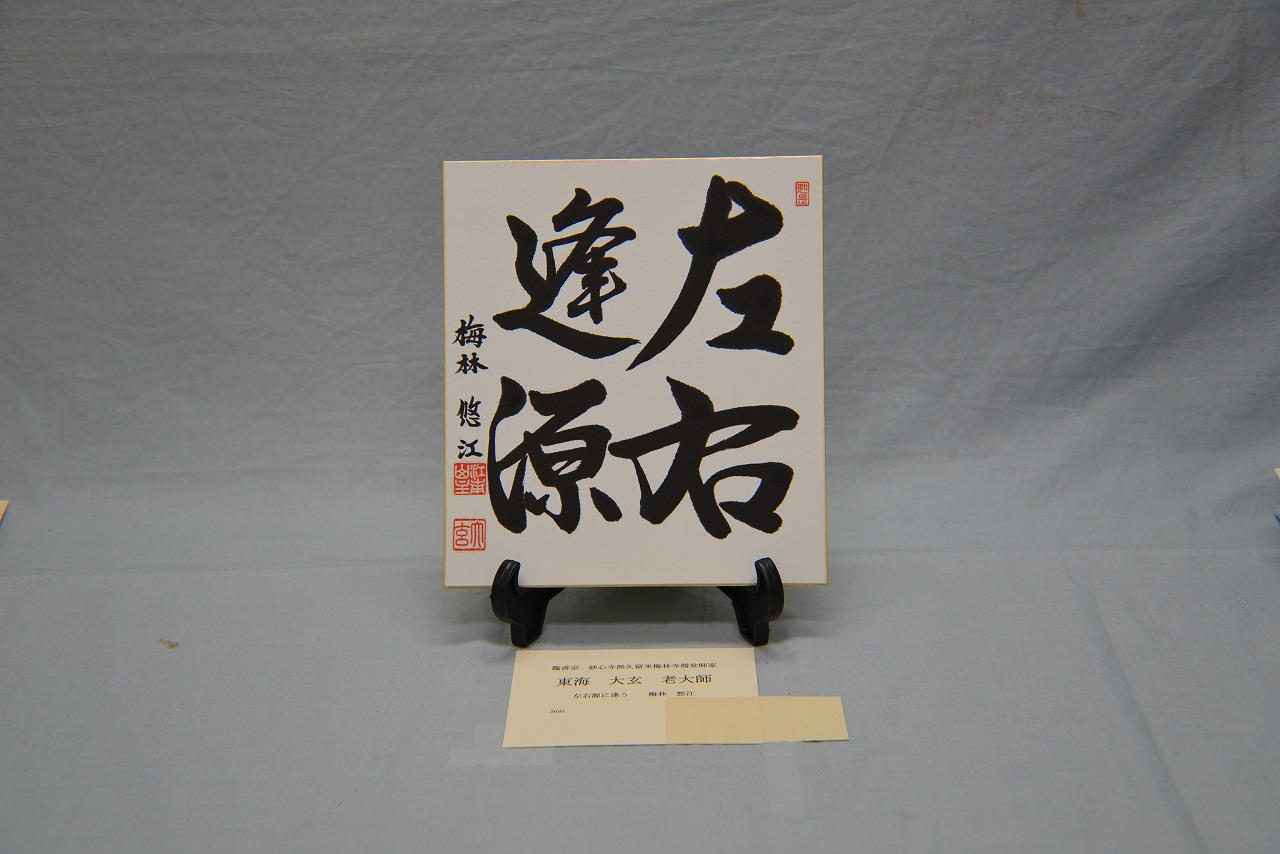 左右
逢源
梅林 悠江
臨済宗 妙心寺派久留米梅林寺僧堂師家
東海 大玄 老大師
左右源に逢う 梅林 悠江